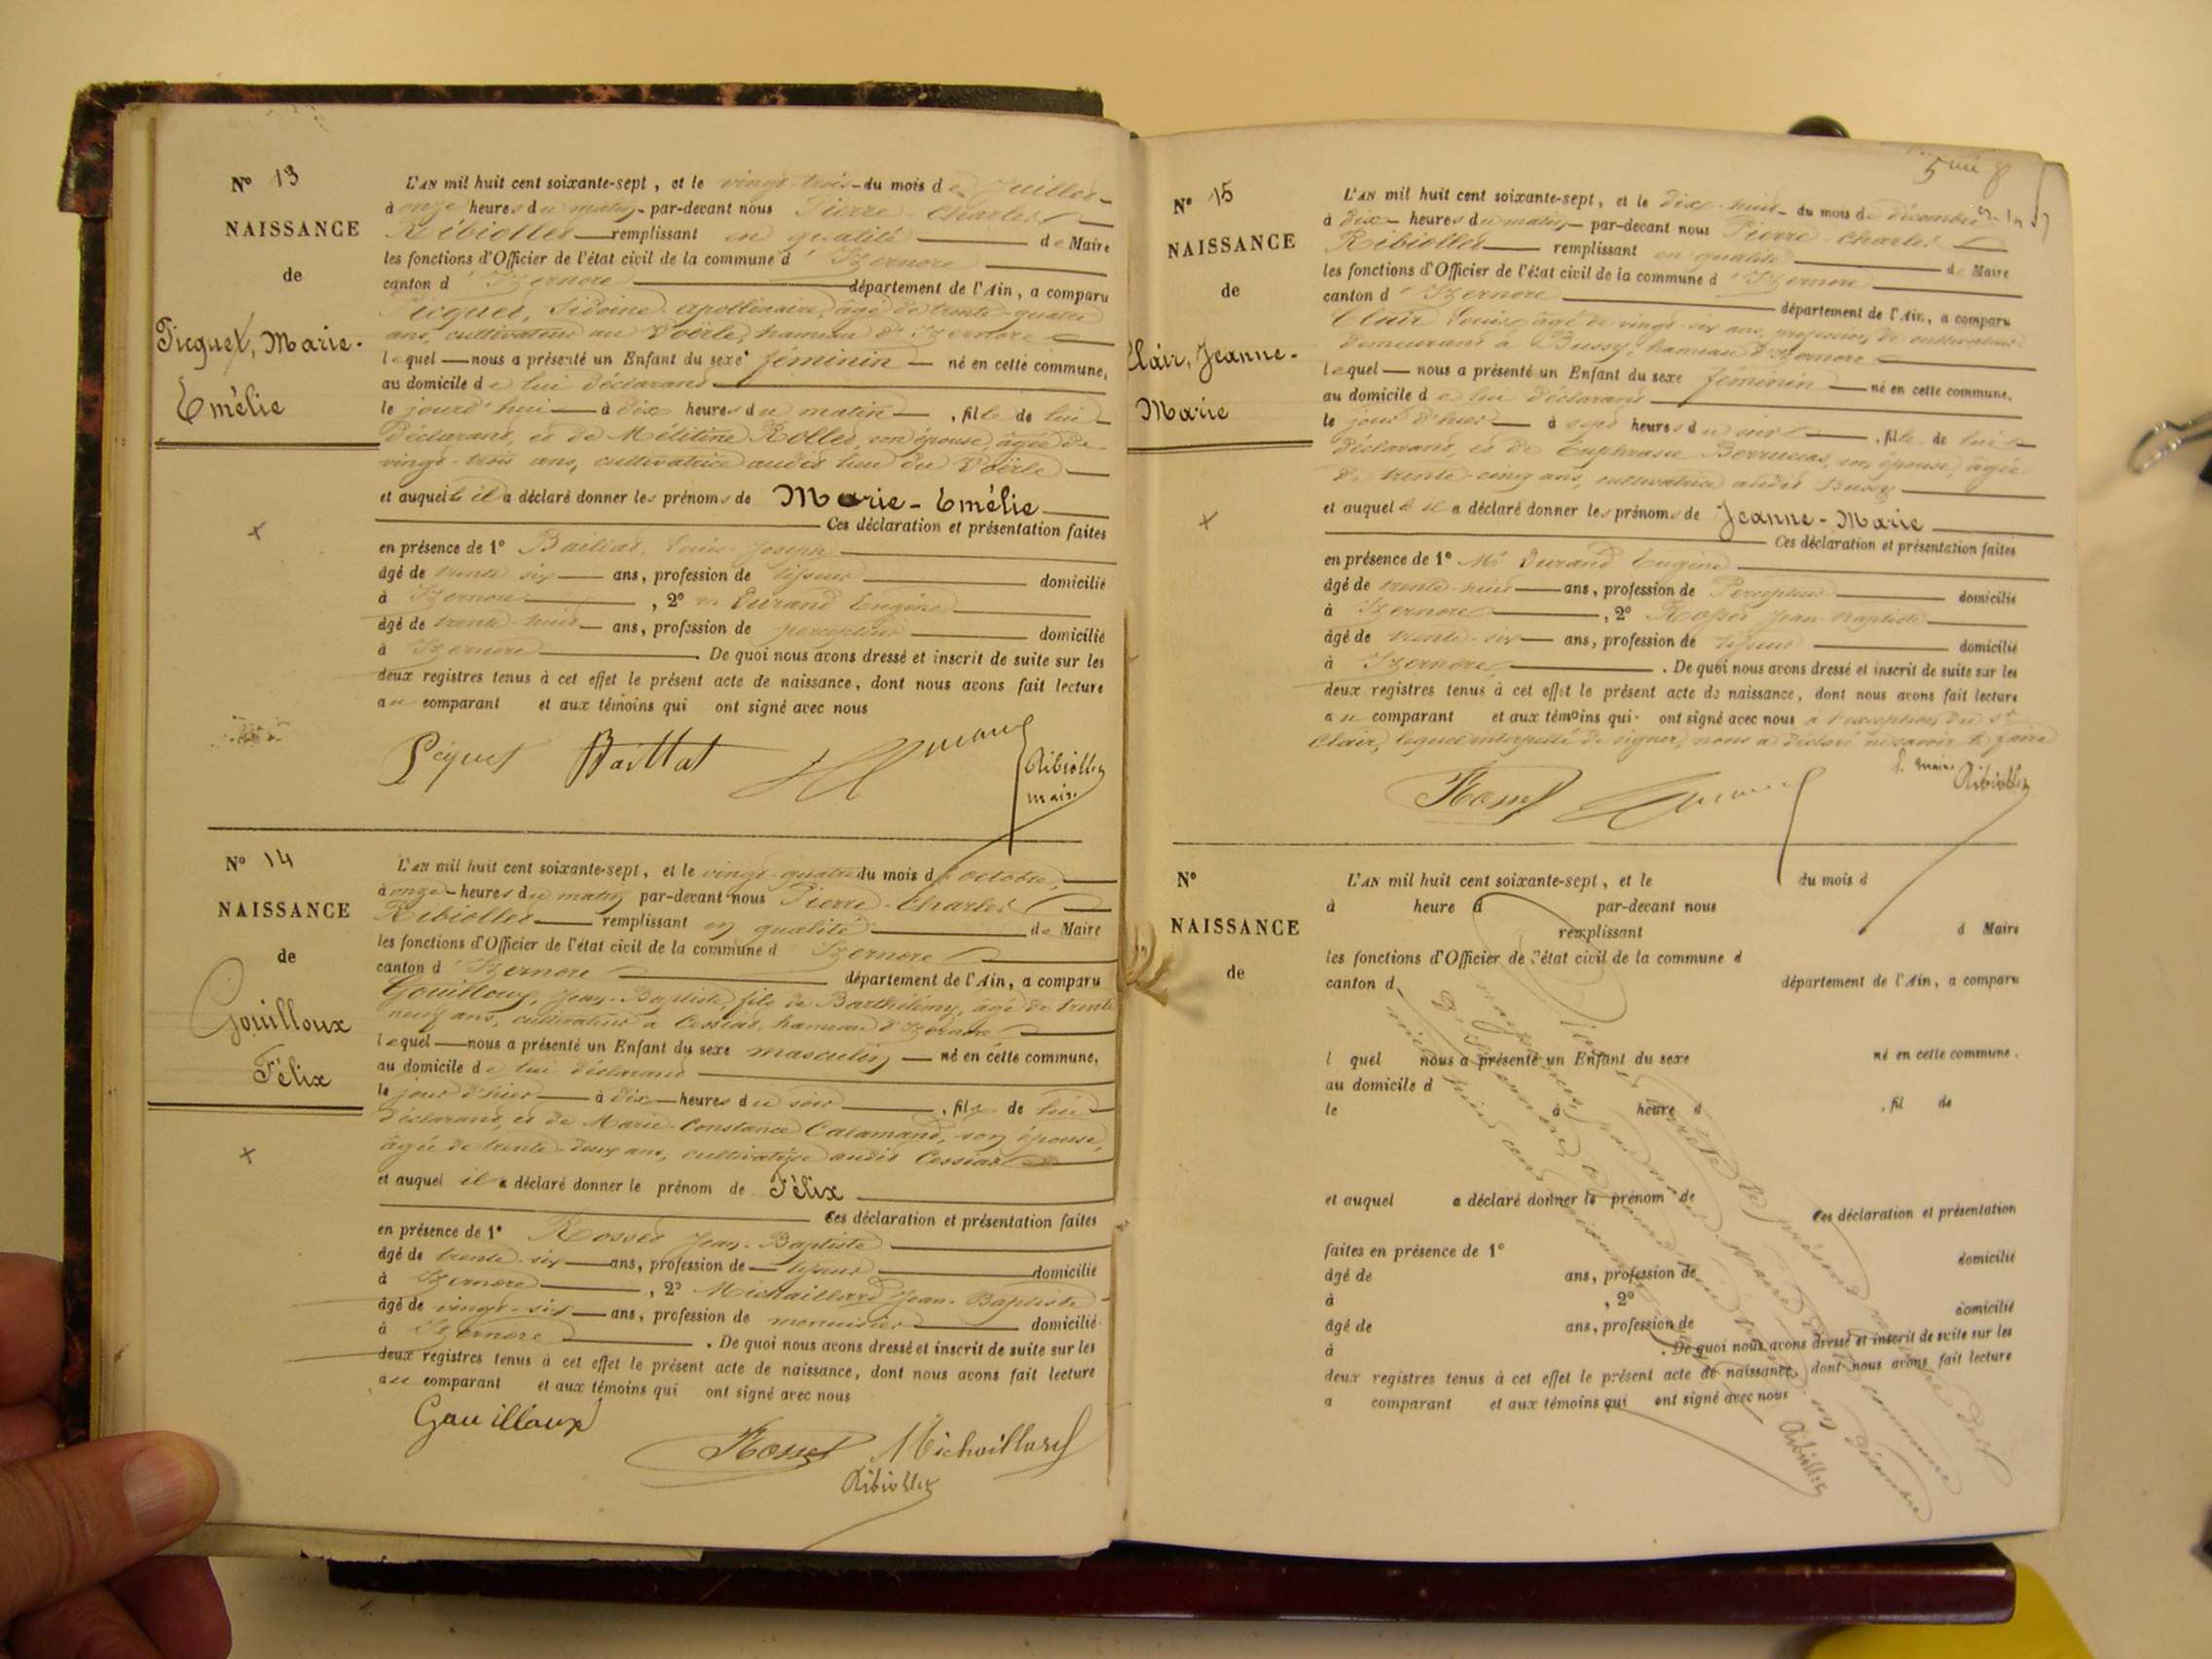 N° 13
NAISSANCE
de
Picquet, Marie-
Emélie
L'AN mil huit cent soixante-sept, et le vingt-trois du mois de Juillet
à onze heures du matin par-devant nous Pierre-Charles
Ribiollet remplissant en qualité de Maire
les fonctions d'Officier de l'état civil de la commune d'Izernore
canton d'Izernore département de l'Ain, a comparu
Picquet, Sidoine Apollinaire, âgé de trente-quatre
ans, cultivateur au Voërle, hameau d'Izernore
lequel nous a présenté un Enfant du sexe féminin né en cette commune,
au domicile de lui déclarant
le jourd'hui à dix heures du matin, fille de lui
déclarant, et de Mélitine Rollet, son épouse, âgée de
vingt-trois ans, cultivatrice audit lieu du Voërle
et auquel le il a déclaré donner les prénoms de Marie-Emélie
Ces déclaration et présentation faites
en présence de 1° Baillat, Louis-Joseph
âgé de trente six ans, profession de tisseur domicilié
à Izernore, 2° Durand Eugène
âgé de trente-huit ans, profession de percepteur domicilié
à Izernore. De quoi nous avons dressé et inscrit de suite sur les
deux registres tenus à cet effet le présent acte de naissance, dont nous avons fait lecture
au comparant et aux témoins qui ont signé avec nous
Péquet Baillat Durand Ribiollet
maire
N° 14
NAISSANCE
de
Gouilloux
Félix
L'AN mil huit cent soixante-sept, et le vingt-quatre du mois d'octobre,
à onze heures du matin par-devant nous Pierre-Charles
Ribiollet remplissant en qualité de Maire
les fonctions d'Officier de l'état civil de la commune d Izernore
canton d'Izernore département de l'Ain, a comparu
Gouilloux, Jean-Baptiste, fils de Barthélemy, âgé de trente
neuf ans, cultivateur à Cessiat, hameau d'Izernore
lequel nous a présenté un Enfant du sexe masculin né en cette commune,
au domicile de lui déclarant
le jour d'hier à dix heures du soir, fils de lui
déclarant, et de Marie-Constance Calamand, son épouse,
âgée de trente-deux ans, cultivatrice audit Cessiat
et auquel il a déclaré donner le prénom de Félix
Ces déclaration et présentation faites
en présence de 1° Rosset Jean-Baptiste
âgé de trente-six ans, profession de tisseur domicilié
à Izernore, 2° Michaillard Jean-Baptiste
âgé de vingt-six ans, profession de menuisier domicilié
à Izernore. De quoi nous avons dressé et inscrit de suite sur les
deux registres tenus à cet effet le présent acte de naissance, dont nous avons fait lecture
au comparant et aux témoins qui ont signé avec nous
Gouilloux
Rosset Michaillard
Ribiollet
N° 15
NAISSANCE
de
Clair, Jeanne-
Marie
L'AN mil huit cent soixante-sept, et le dix-huit du mois de décembre
à dix heures du matin par-devant nous Pierre-Charles
Ribiollet remplissant en qualité de Maire
les fonctions d'Officier de l'état civil de la commune d'Izernore
canton d'Izernore département de l'Ain, a comparu
Clair Louis, âgé de vingt-six ans, profession de cultivateur
demeurant à Bussy, hameau d'Izernore
lequel nous a présenté un Enfant du sexe féminin né en cette commune,
au domicile de lui déclarant
le jour d'hier à sept heures du soir, fille de lui
déclarant, et de Euphrasie Berruccas, son épouse, âgée
de trente-cinq ans, cultivatrice audit Bussy
et auquel le il a déclaré donner les prénoms de Jeanne-Marie
Ces déclaration et présentation faites
en présence de 1° Mr Durand Eugène
âgé de trente-huit ans, profession de Percepteur domicilié
à Izernore, 2° Rosset Jean-Baptiste
âgé de trente-six ans, profession de tisseur domicilié
à Izernore. De quoi nous avons dressé et inscrit de suite sur les
deux registres tenus à cet effet le présent acte de naissance, dont nous avons fait lecture
au comparant et aux témoins qui ont signé avec nous à l'exception du Sr
Clair, lequel interpellé de signer, nous a déclaré ne savoir le faire
Rosset Durand le maire Ribiollet
N°
NAISSANCE
de
L'AN mil huit cent soixante-sept, et le du mois d
à heure d par-devant nous
remplissant d Maire
les fonctions d'Officier de l'état civil de la commune d
canton d département de l'Ain, a comparu
l quel nous a présenté un Enfant du sexe né en cette commune.
au domicile d
le à heure d, fil de
et auquel a déclaré donner le prénom de
Ces déclaration et présentation
faites en présence de 1° domicilié
âgé de ans, profession de
à, 2° domicilié
âgé de ans, profession de
à. De quoi nous avons dressé et inscrit de suite sur les
deux registres tenus à cet effet le présent acte de naissance, dont nous avons fait lecture
a comparant et aux témoins qui ont signé avec nous
Ribiollet